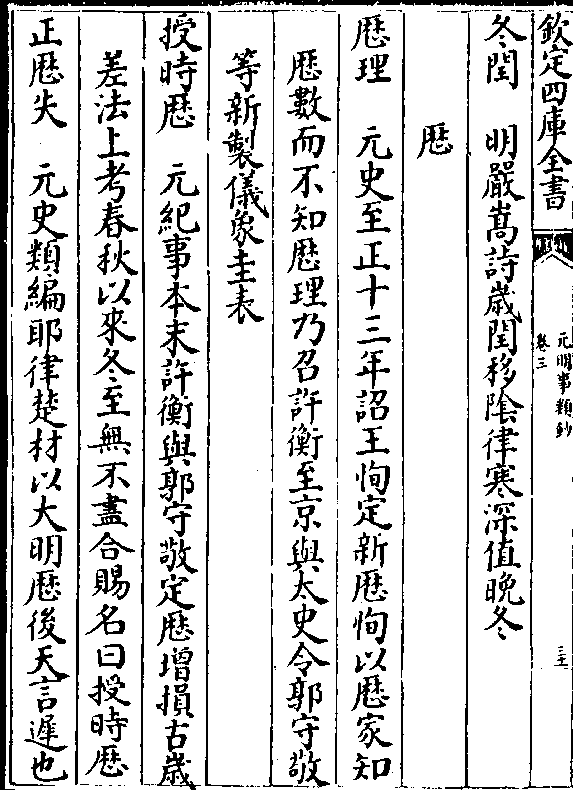 欽定四庫全書
元明事類鈔
卷三
三十
冬閏　明嚴嵩詩歲閏移陰律寒深值晚冬
歷
歷理　元史至正十三年詔王恂定新歷恂以歷家知
歷數而不知歷理乃召許衡至京與太史令郭守敬
等新製儀象圭表
授時歷　元紀事本末許衡與郭守敬定歷增損古歲
差法上考春秋以來冬至無不盡合賜名曰授時歷
正歷失　元史類編耶律楚材以大明歷後天言遲也